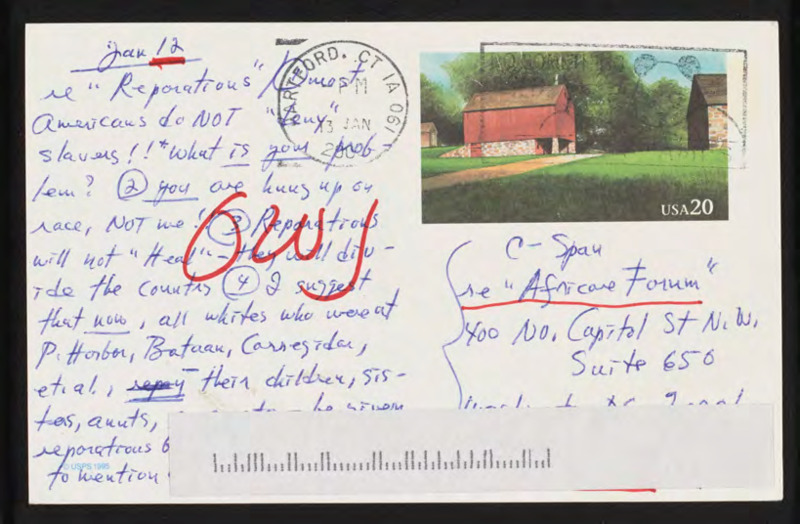 Jan 12
re "Reparations" / most
Americans do NOT "deny"
slavery!! *What is your prob-
lem? ② you are hung up on
race, NOT me! ③ Reparations
will not "Heal" - they will div-
ide the country ④ I suggest
that now, all whites who were at
P. Harbor, Bataan, Corregidor,
et al., their children, sis-
ters, aunts, be given
reparations
to mention
© USPS 1995
6WJ
HARTFORD, CT 061
PM
13 JAN
USA20
C-Span
re "Africare Forum"
400 No. Capitol St N.W.
Suite 650